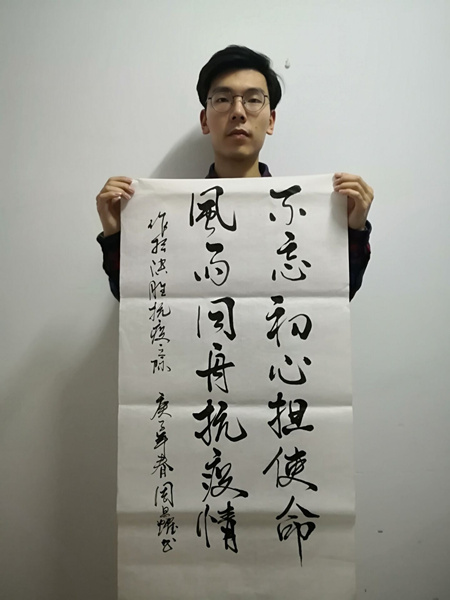 不忘初心担使命
風雨同舟抗疫情
作於決胜抗疫之际 庚子年春 周书